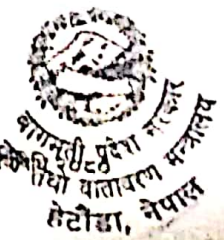 बागमती प्रदेश सरकार
वातावरण मन्त्रालय
हेटौंडा, नेपाल